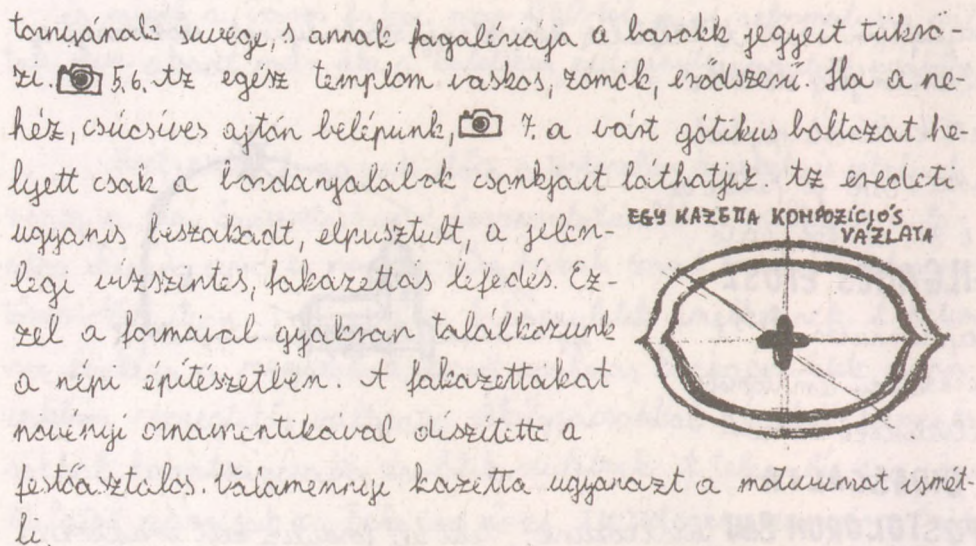 tornyának süvege, s annak fagalériája a barokk jegyeit tükrö-
zi. 5.6. Az egész templom vaskos, zömök, erődszerű. Ha a ne-
héz, csúcsíves ajtón belépünk, 7. a várt gótikus boltozat he-
lyett csak a bordanyalábok csonkjait láthatjuk. Az eredeti
ugyanis beszakadt, elpusztult, a jelen-
legi vízszintes, fakazettás lefedés. Ez-
zel a formával gyakran találkozunk
a népi építészetben. A fakazettákat
növényi ornamentikával díszítette a
festőasztalos. Valamennyi kazetta ugyanazt a motívumot ismét-
li.
EGY KAZETTA KOMPOZÍCIÓS
VÁZLATA